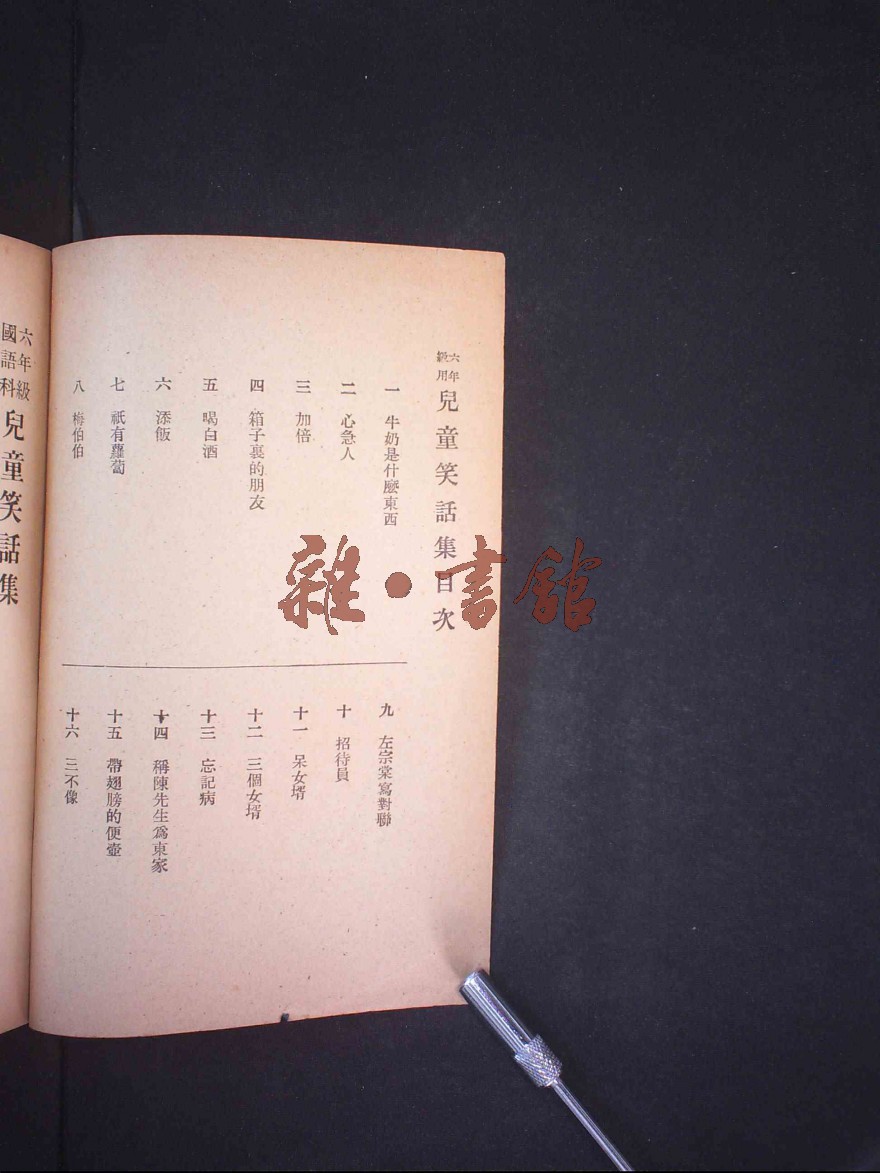 六年級用 兒童笑話集目次
一 牛奶是什麼東西
二 心急人
三 加倍
四 箱子裏的朋友
五 喝白酒
六 添飯
七 祇有蘿蔔
八 梅伯伯
九 左宗棠寫對聯
十 招待員
十一 呆女壻
十二 三個女壻
十三 忘記病
十四 稱陳先生爲東家
十五 帶翅膀的便壺
十六 三不像
六年級
國語科
兒童笑話集
雜·書館